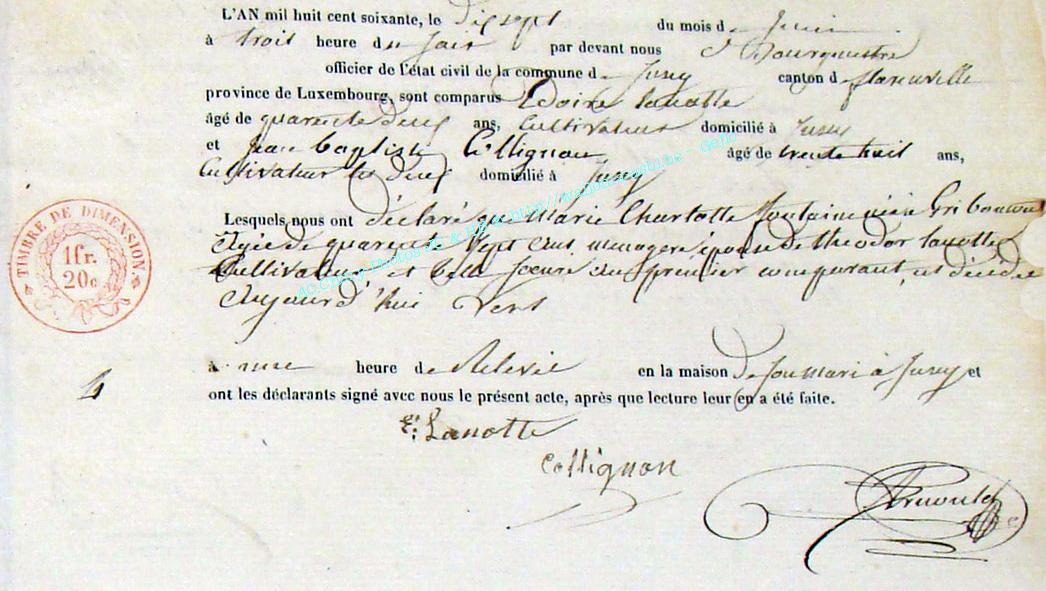 L'AN mil huit cent soixante, le dix sept du mois de juin
à trois heure du soir par devant nous Bourgmestre
officier de l'état civil de la commune d canton d
province de Luxembourg, sont comparus Lanotte
âgé de quarente deux ans, Cultivateur domicilié à
et jean baptiste Collignon âgé de trente huit ans,
Cultivateur les deux domicilié à
Lesquels nous ont déclaré que Marie Charlotte
Agée de quarente sept ans menagere épouse de theodor Lanotte
Cultivateur et belle soeure au premier comparant, est décédée
Aujourd'hui vers
à une heure de Relevée en la maison de son mari à et
ont les déclarants signé avec nous le présent acte, après que lecture leur en a été faite.
TIMBRE DE DIMENSION
1fr.
20c
Lanotte
Collignon